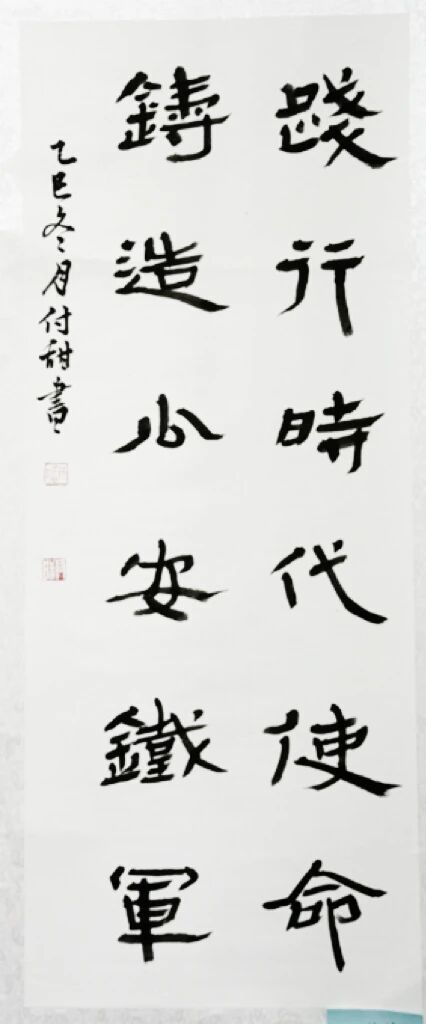 踐行時代使命
鑄造公安鐵軍
乙巳冬月付甜書